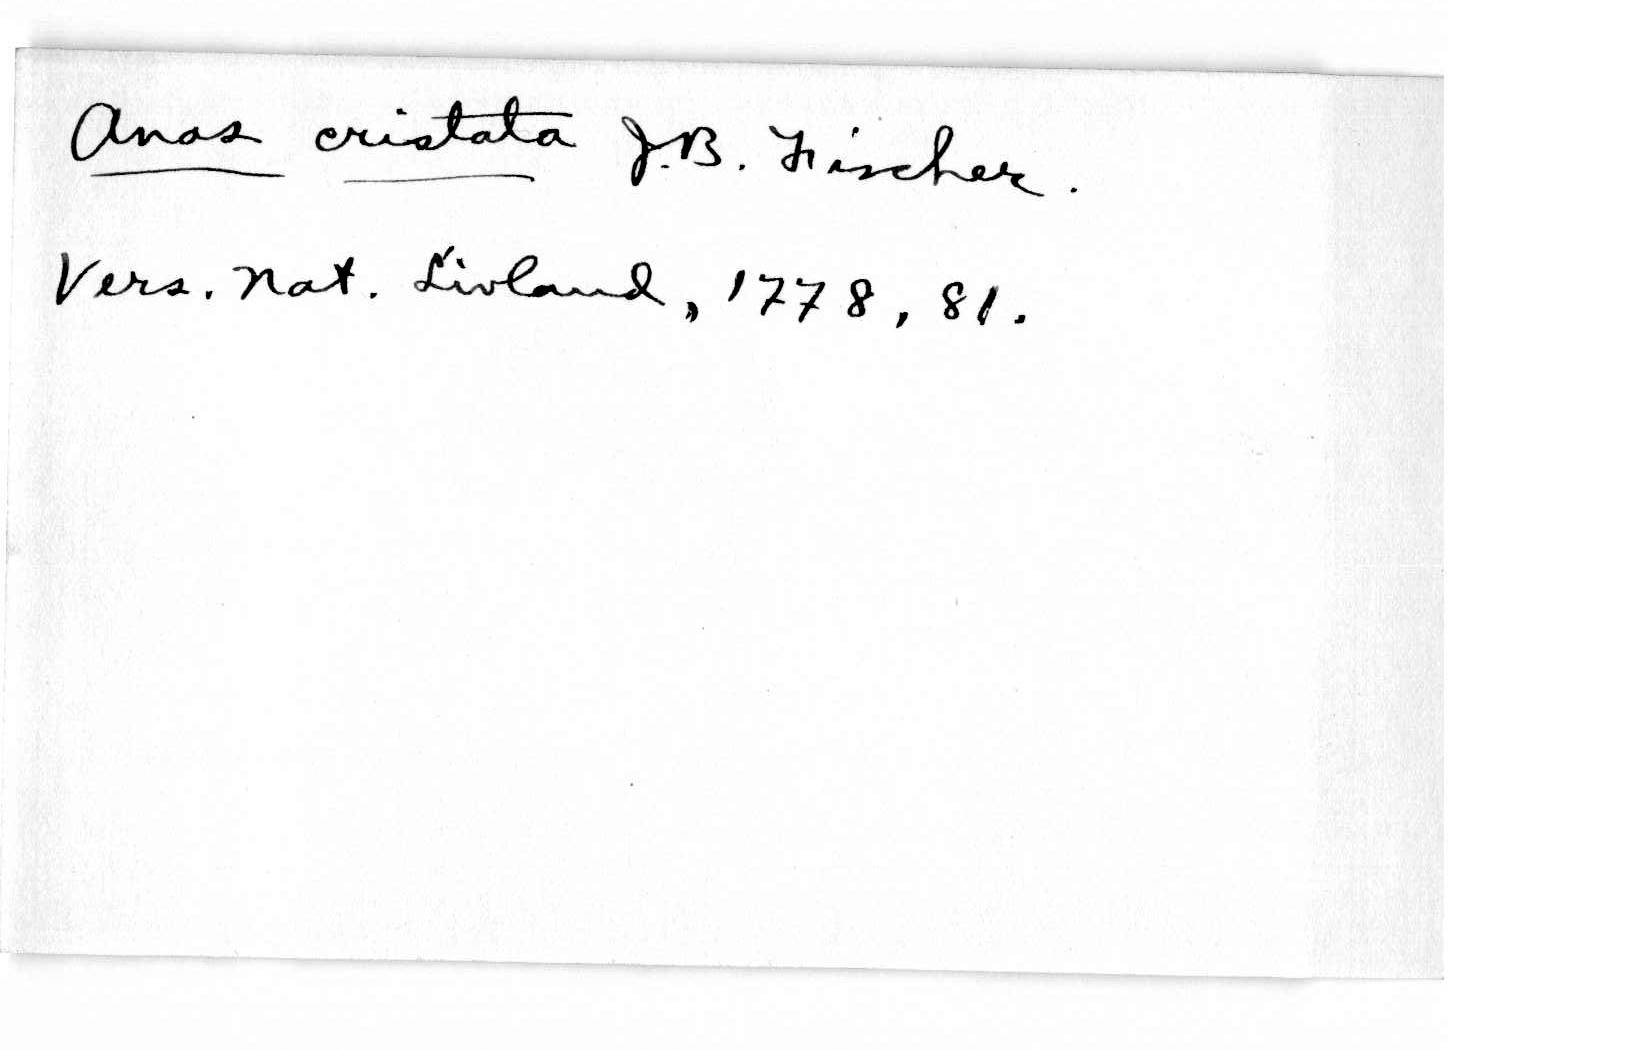 Anas cristata J.B. Fischer.
Vers. Nat. Livland, 1778, 81.